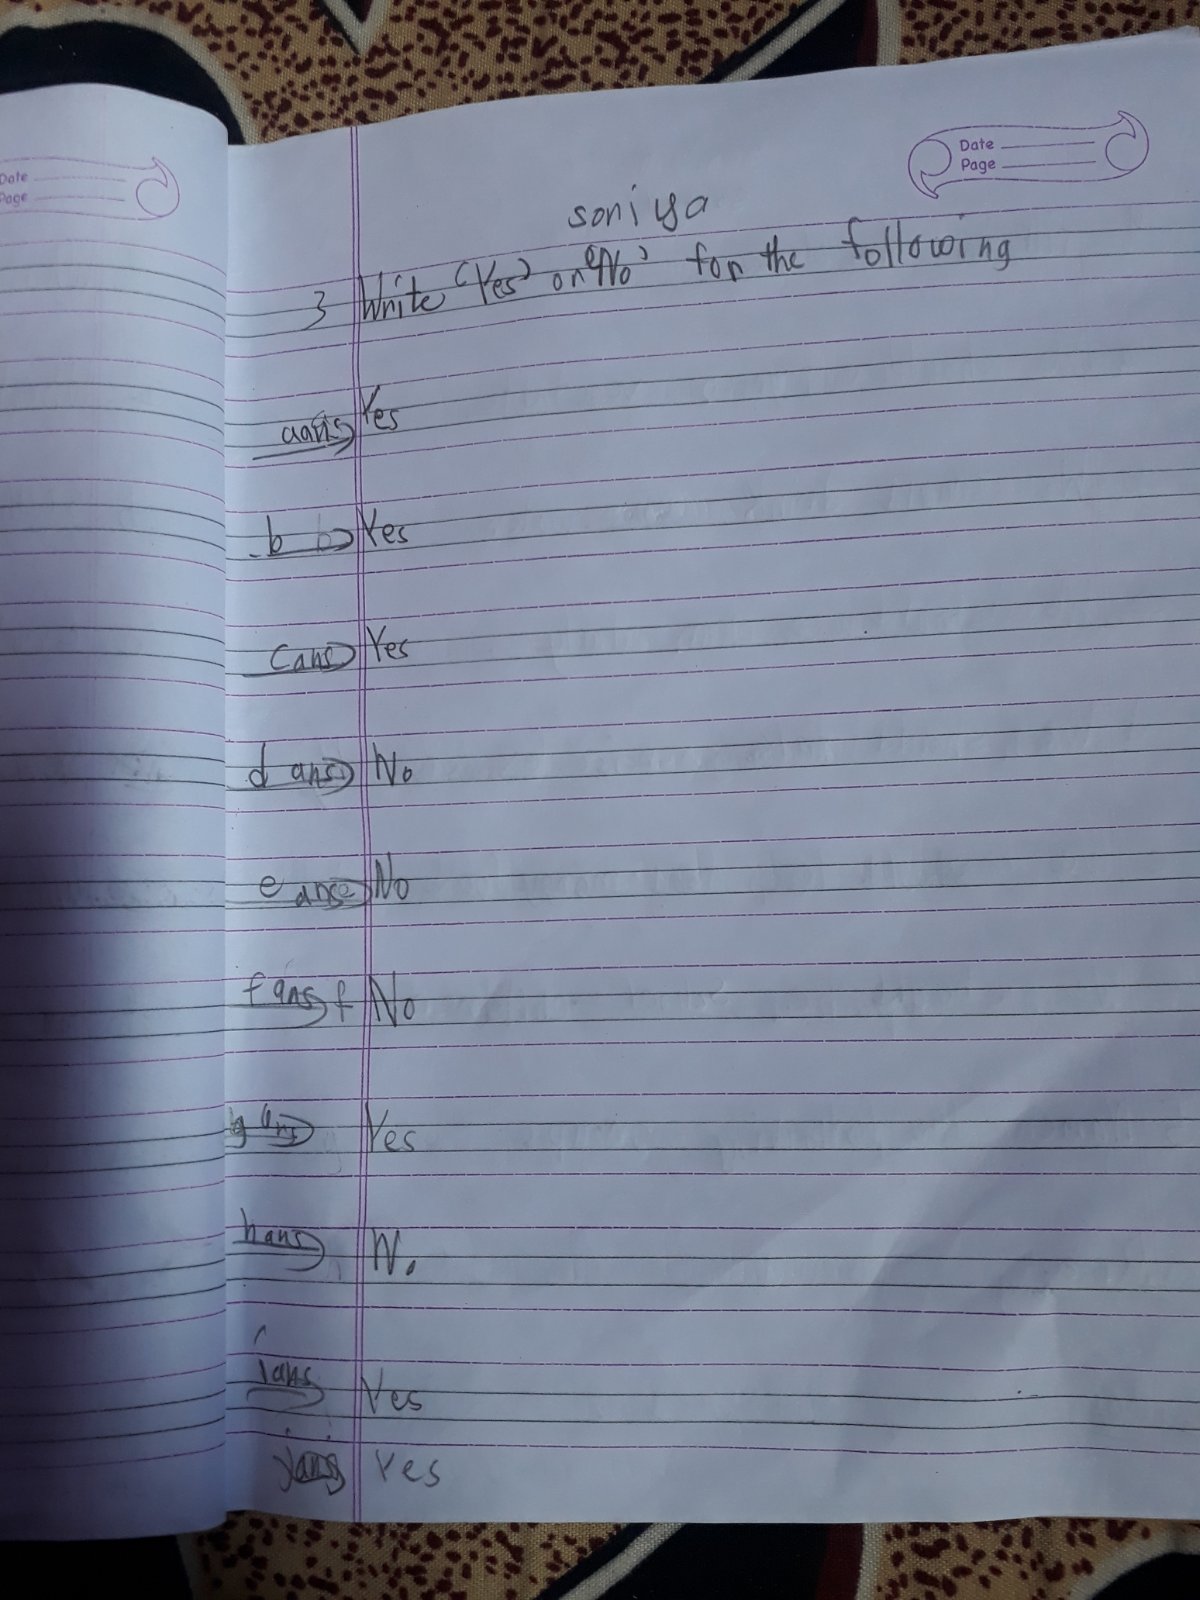 Date
Page
Date
Page
soniya
3 Write 'Yes' or 'No' for the following
a ans Yes
b b Yes
c ans Yes
d ans No
e ans e No
f ans f No
g ans Yes
h ans No
i ans Yes
j ans Yes